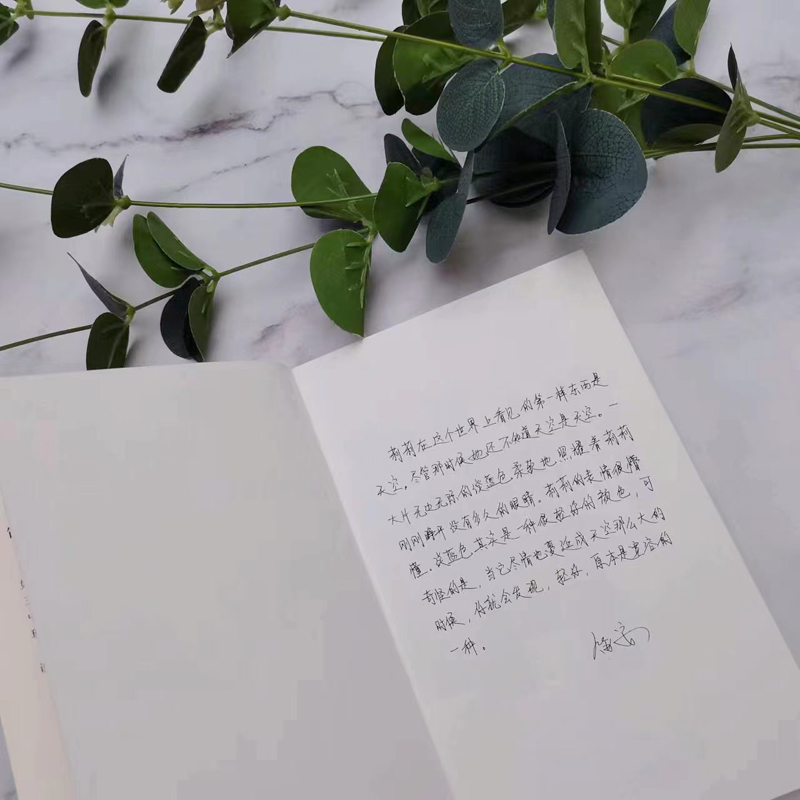 莉莉在这个世界上看见的第一样东西是
天空。尽管那时候她还不知道天空是天空。一
大片无边无际的浅蓝色柔软地照耀着莉莉
刚刚睁开没有多久的眼睛。莉莉的表情很懵
懂。浅蓝色其实是一种很轻佻的颜色，可
奇怪的是，当它尽情地蔓延成天空那么大的
时候，你就会发现，轻佻，原本是宽容的
一种。
笛安